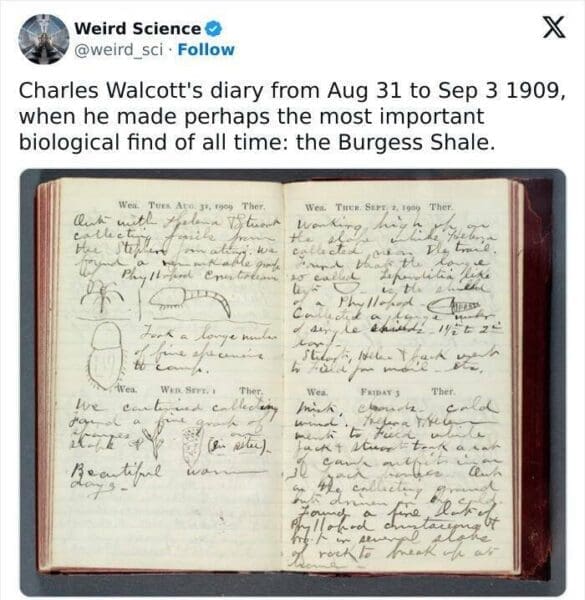 Weird Science
@weird_sci · Follow
X
Charles Walcott's diary from Aug 31 to Sep 3 1909,
when he made perhaps the most important
biological find of all time: the Burgess Shale.
Wea. Tues. Aug. 31, 1909 Ther.
Out with Helena & Stuart
collecting fossils from
the Stephen formation. We
found a remarkable group
Phyllopod Crustaceans
Took a large number
of fine specimens
to camp.
Wea. Wed. Sept. 1 Ther.
We continued collecting
found a fine group of
sponges
(in situ).
Beautiful warm
days -
Wea. Thur. Sept. 2, 1909 Ther.
Working high up on
the slope while Helena
collected near the trail.
Found that the large
so called Leperditia like
test is the shield
of a Phyllopod
Collected a large number
of single shields 1½ to 2"
long.
Stuart, Helen & Jack went
to Field for mail - etc.
Wea. Friday 3 Ther.
clouds, cold
wind. Helena & Helen
went to Field while
Jack & Stuart took a
of camp outfit
Out
on the collecting ground
but driven in by cold
Found a fine
Phyllopod crustaceans &
bro't in several slabs
of rock to break up at
home -